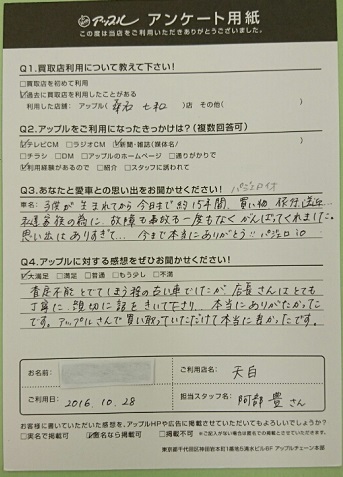 アップル アンケート用紙
この度は当店をご利用いただきありがとうございました。
Q1.買取店利用について教えて下さい!
□買取店を初めて利用
☑過去に買取店を利用したことがある
利用した店舗: アップル( 桑名 七和 )店 その他( )
Q2.アップルをご利用になったきっかけは?(複数回答可)
☑テレビCM □ラジオCM ☑新聞・雑誌(媒体名/ )
□チラシ □DM □アップルのホームページ □通りがかりで
☑利用経験があるので □紹介 □スタッフに誘われて
Q3.あなたと愛車との思い出をお聞かせください!
車名: 子供が生まれてから今日まで約15年間、買い物、旅行、送迎…
私達家族の為に、故障も事故も一度もなくがんばってくれました。
思い出はありすぎて… 今まで本当にありがとう!! パジェロ io
Q4.アップルに対する感想をぜひお聞かせください!
☑大満足 □満足 □普通 □もう少し □不満
査定不能とでてしまう程の古い車でしたが、店長さんはとても
丁寧に親切に話をきいて下さり、本当にありがたかった
です。アップルさんで買い取っていただけて本当に良かったです。
お名前:
ご利用店名: 天白
ご利用日: 2016. 10. 28
担当スタッフ名: 阿部 豊さん
お客様に書いていただいた感想を、アップルHPや広告に掲載させていただいてもよろしいでしょうか?
□実名で掲載可 ☑匿名なら掲載可 □掲載不可 ※ご記入がない場合は匿名での掲載とさせていただきます。
東京都千代田区神田岩本町1番地5清水ビル6F アップルチェーン本部